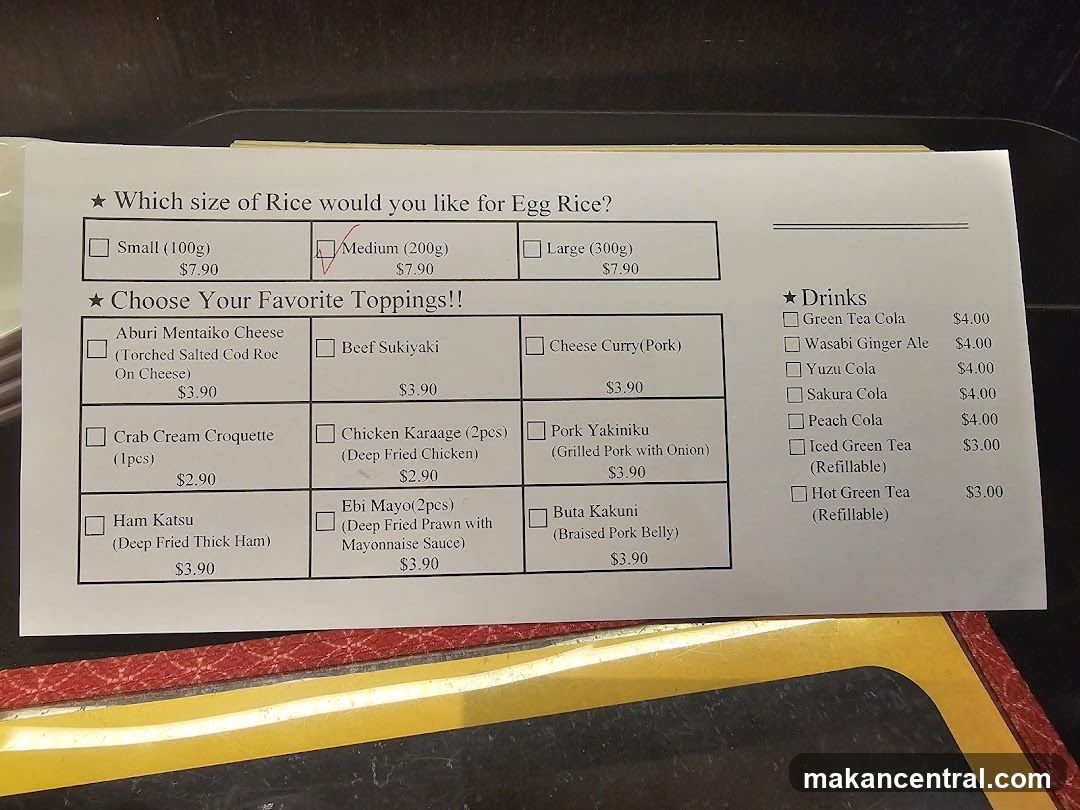 ★ Which size of Rice would you like for Egg Rice?
Small (100g)
$7.90
Medium (200g)
$7.90
Large (300g)
$7.90
★ Choose Your Favorite Toppings!!
Aburi Mentaiko Cheese
(Torched Salted Cod Roe
On Cheese)
$3.90
Beef Sukiyaki
$3.90
Cheese Curry(Pork)
$3.90
Crab Cream Croquette
(1pcs)
$2.90
Chicken Karaage (2pcs)
(Deep Fried Chicken)
$2.90
Pork Yakiniku
(Grilled Pork with Onion)
$3.90
Ham Katsu
(Deep Fried Thick Ham)
$3.90
Ebi Mayo(2pcs)
(Deep Fried Prawn with
Mayonnaise Sauce)
$3.90
Buta Kakuni
(Braised Pork Belly)
$3.90
★ Drinks
Green Tea Cola $4.00
Wasabi Ginger Ale $4.00
Yuzu Cola $4.00
Sakura Cola $4.00
Peach Cola $4.00
Iced Green Tea $3.00
(Refillable)
Hot Green Tea $3.00
(Refillable)
makancentral.com